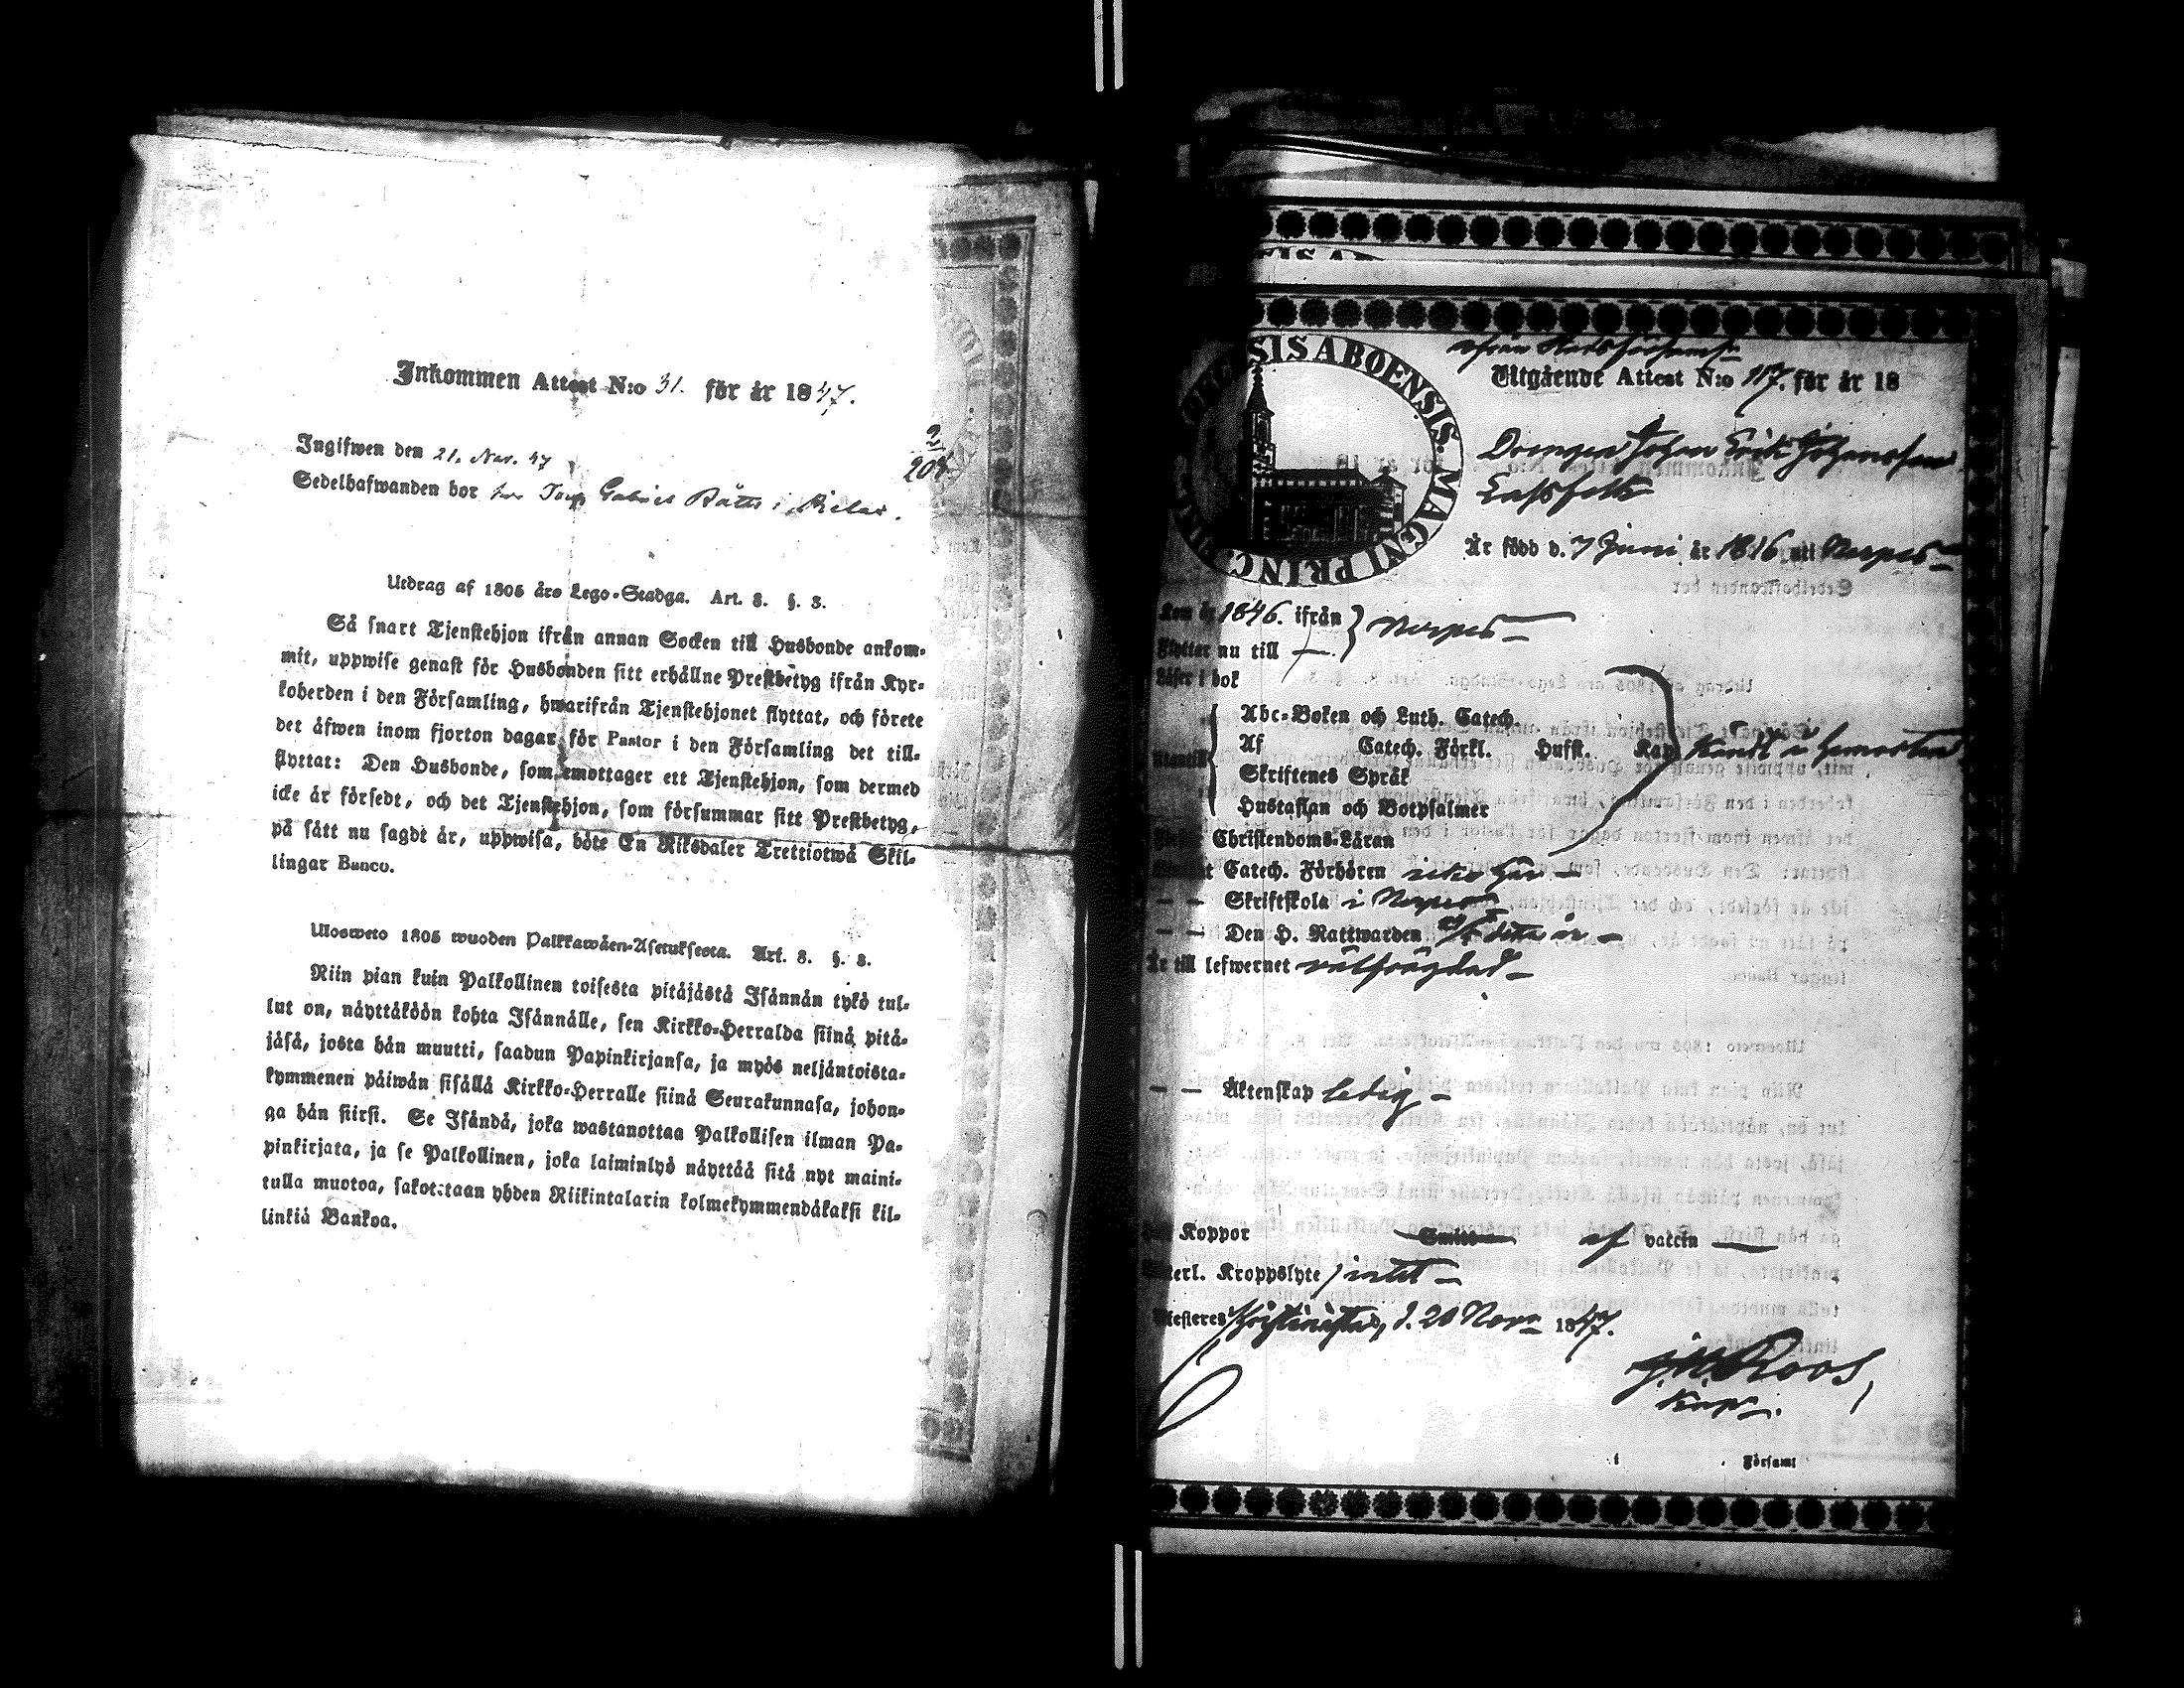 Inkommen Attest N:o 31. för år 1847.
2
204
Ingifwen den 21. Nov. 47
Sedelhafwanden bor hos Torp. Gabriel Båtts i Pielax.
Utdrag af 1805 års Lego-Stadga. Art. 3. §. 3.
Så snart Tjenstehjon ifrån annan Socken till Husbonde ankom-
mit, uppwise genast för Husbonden sitt erhållne Prestbetyg ifrån Kyr-
koherden i den Församling, hwarifrån Tjenstehjonet flyttat, och förete
det äfwen inom fjorton dagar för Pastor i den Församling det till-
flyttat: Den Husbonde, som emottager ett Tjenstehjon, som dermed
icke är försedt, och det Tjenstehjon, som försummar sitt Prestbetyg,
på sätt nu sagdt är, uppwisa, böte En Riksdaler Trettiotwå Skil-
lingar Banco.
Ulosweto 1805 wuoden Palkkawäen-Asetuksesta. Art. 3. §. 3.
Niin pian kuin Palkollinen toisesta pitäjästä Isännän tykö tul-
lut on, näyttäköön kohta Isännälle, sen Kirkko-Herralda siinä pitä-
jäsä, josta hän muutti, saadun Papinkirjansa, ja myös neljäntoista-
kymmenen päiwän sisällä Kirkko-Herralle siinä Seurakunnasa, johon-
ga hän siirsi. Se Isändä, joka wastanottaa Palkollisen ilman Pa-
pinkirjata, ja se Palkollinen, joka laiminlyö näyttää sitä nyt maini-
tulla muotoa, sakotetaan yhden Riikintalarin kolmekymmendäkaksi kil-
linkiä Bankoa.
SIS ABOENSIS. MAGNI PRINC
Utgående Attest N:o 117. för år 18
Drengen Johan Erik Johansson
Lassfolk
Är född d. 7 Juni år 1816 uti Nerpes
Kom år 1846. ifrån } Nerpes
Flyttar nu till
Läser i bok
Abc-Boken och Luth. Catech.
Utantill Af Catech. Förkl. Husft. Kap
Skriftenes Språk
Hustaflan och Botpsalmer
Christendoms-Läran
Catech. Förhören icke här
— — Skriftskola i Nerpes
— — Den H. Nattwarden detta år
Är till lefwernet välfrägdad
— — Äktenskap ledig
Koppor Smitt af vaccin
Kroppslyte intet
Attesteres Christinestad, d. 20 Nov. 1847.
J. W. Roos,
Kap.
Församl